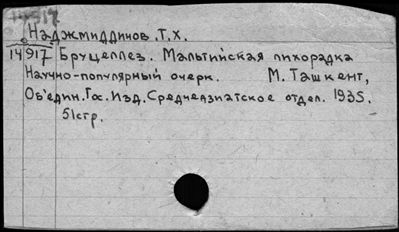 Наджмиддинов. Т.Х.
14917 Бруцеллез. Мальтийская лихорадка
Научно-популярный очерк. М. Ташкент,
Об'един. Гос. Изд. Среднеазиатское отдел. 1935.
51стр.